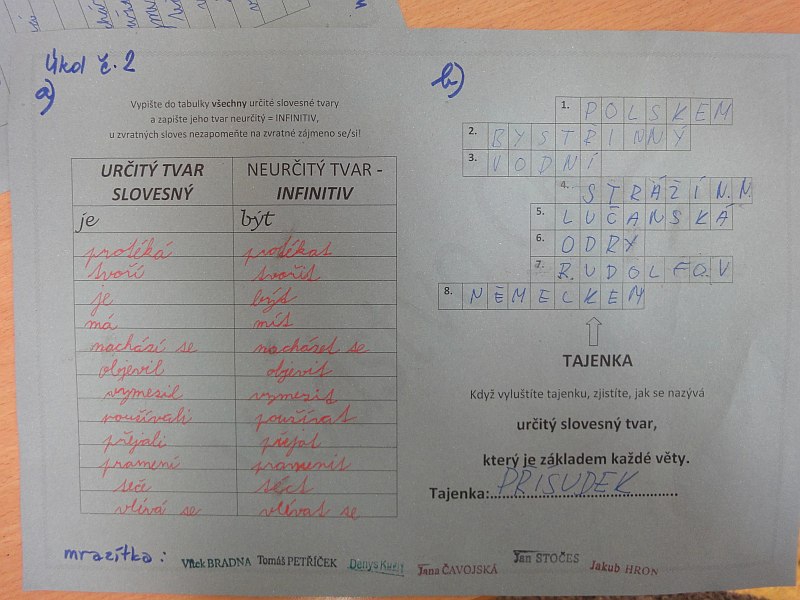 Úkol č. 2
a)
Vypište do tabulky všechny určité slovesné tvary
a zapište jeho tvar neurčitý = INFINITIV,
u zvratných sloves nezapomeňte na zvratné zájmeno se/si!
URČITÝ TVAR SLOVESNÝ NEURČITÝ TVAR - INFINITIV
je být
protéká protékat
tvoří tvořit
je být
má mít
nachází se nacházet se
objevil objevit
vymezil vymezit
používali používat
přijali přijat
pramení pramenit
teče téct
vlévá se vlévat se
b)
1. POLSKEM
2. BYSTŘINNÝ
3. VODNÍ
4. STRÁŽÍ N. N.
5. LUČANSKÁ
6. ODRY
7. RUDOLFOV
8. NĚMECKEM
TAJENKA
Když vyluštíte tajenku, zjistíte, jak se nazývá
určitý slovesný tvar,
který je základem každé věty.
Tajenka: PŘISUDEK
mrazítka: Vítek BRADNA Tomáš PETŘÍČEK Denys Jana ČAVOJSKÁ Jan STOČES Jakub HRON